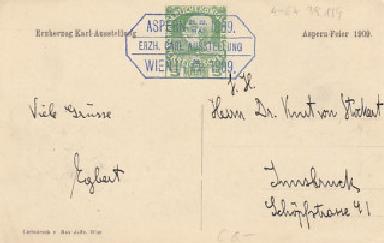 4-64 39 159
Erzherzog Karl-Ausstellung
ASPERN 1809.
ERZH. CARL AUSSTELLUNG
WIEN 1909.
Aspern-Feier 1909.
S. H.
Herrn Dr. Kurt von Stockert
Viele Grüsse
Egbert
Innsbruck
Schöpfstrasse 41
Lichtdruck v. Max Jaffé, Wien